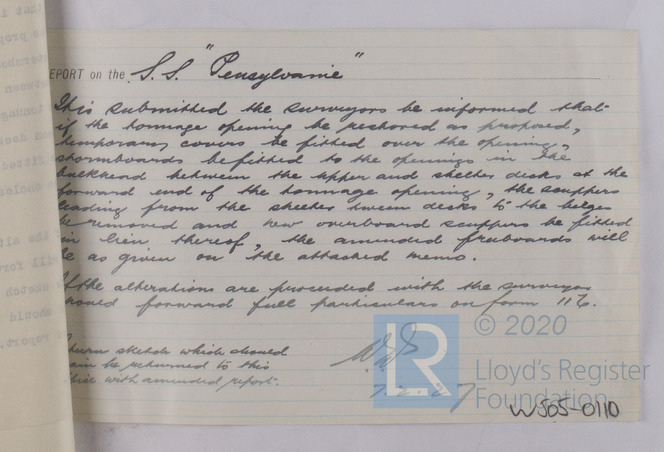 EPORT on the S.S. "Pensylvanie"
It is submitted the surveyors be informed that
if the tonnage opening be restored as proposed,
temporary covers be fitted over the opening,
stormboards be fitted to the openings in the
bulkhead between the upper and shelter decks at the
forward end of the tonnage opening, the scuppers
leading from the shelter tween decks to the bilges
be removed and new overboard scuppers be fitted
in lieu thereof, the amended freeboards will
be as given on the attached memo.
If the alterations are proceeded with the surveyors
should forward full particulars on form 116.
sketch which should
be returned to this
office with amended report.
© 2020
LR
Lloyd's Register
Foundation
W505-0110